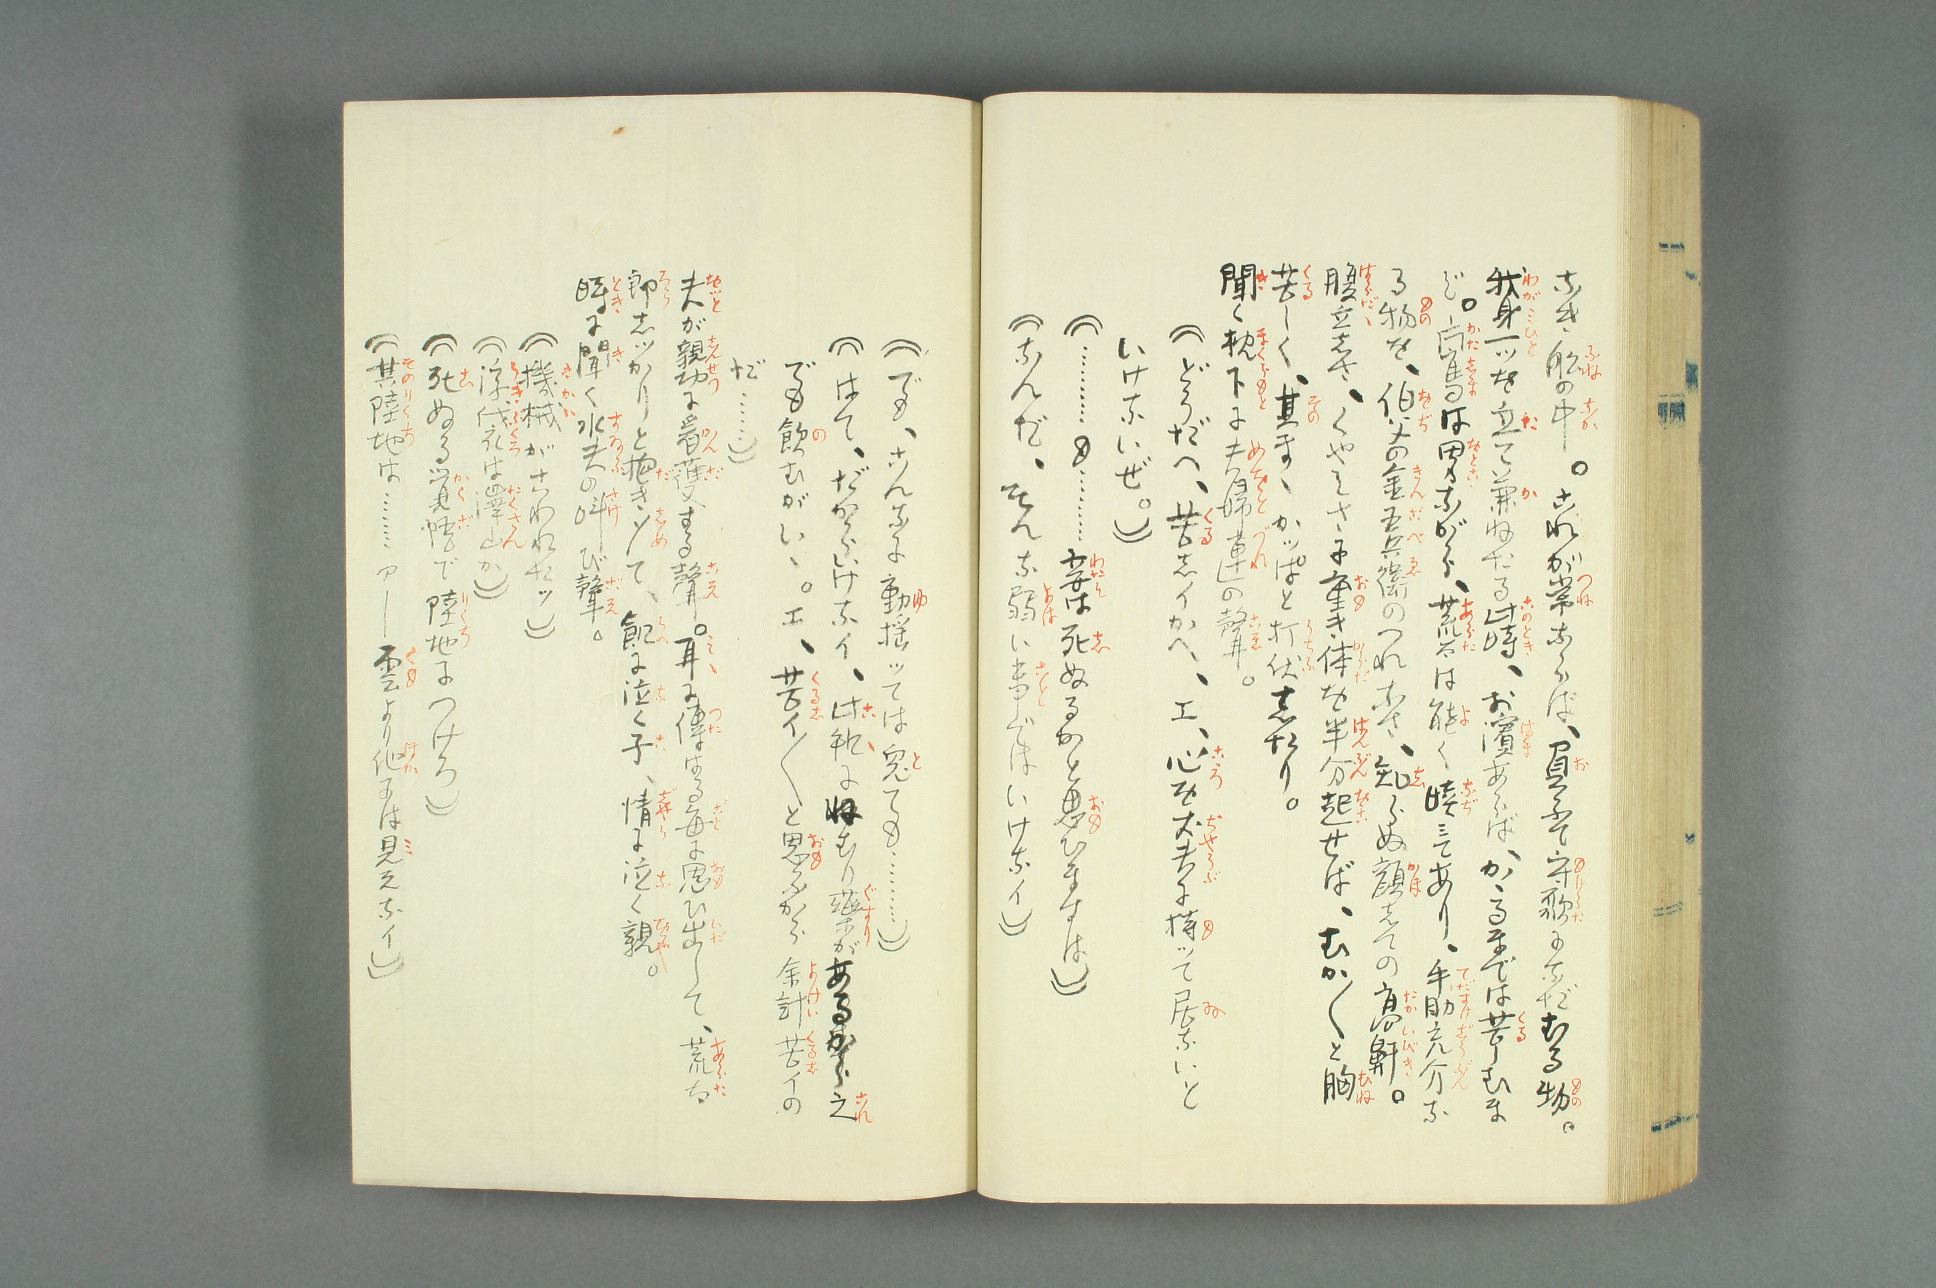 なき船の中。これが常ならば、負ふて守歌にたださむる物。
我身一ツを立て兼ねたる此時、お濱あらばかゝるまでは苦しむま
じ。向島は男ながら、荒太は能く睦みてあり、手助充分な
る物を、伯父の金五兵衛のつれなさ、知らぬ顔しての高鼾。
腹立しさ、くやしさに重き体を半分起せば、むか〳〵と胸
苦しく、其まゝかッぱと打伏したり。
聞く枕下に夫婦連の聲。
(どうだへ、苦しイかへ、エ、心を丈夫に持ッて居ないと
いけないぜ。)
(………も………妾は死ぬるかと思ひますは)
(なんだ、そんな弱い事ではいけないイ)
(でも、こんなに動揺ッては兎ても………)
(はて、だからいけないイ、此処にねむり薬があるから之
でも飲むがいゝ。エ、苦イ〳〵と思ふから余計苦イの
だ……)
夫が親切に看護する聲。耳に傳はる毎に思ひ出して、荒太
郎しッかりと抱き〆て、飢に泣く子、情に泣く親。
時に聞く水夫の叫び聲。
(機械がこわれたッ)
(浮袋は澤山か)
(死ぬる覚悟で陸地につけろ)
(其陸地は……アー雲より他には見えないイ)